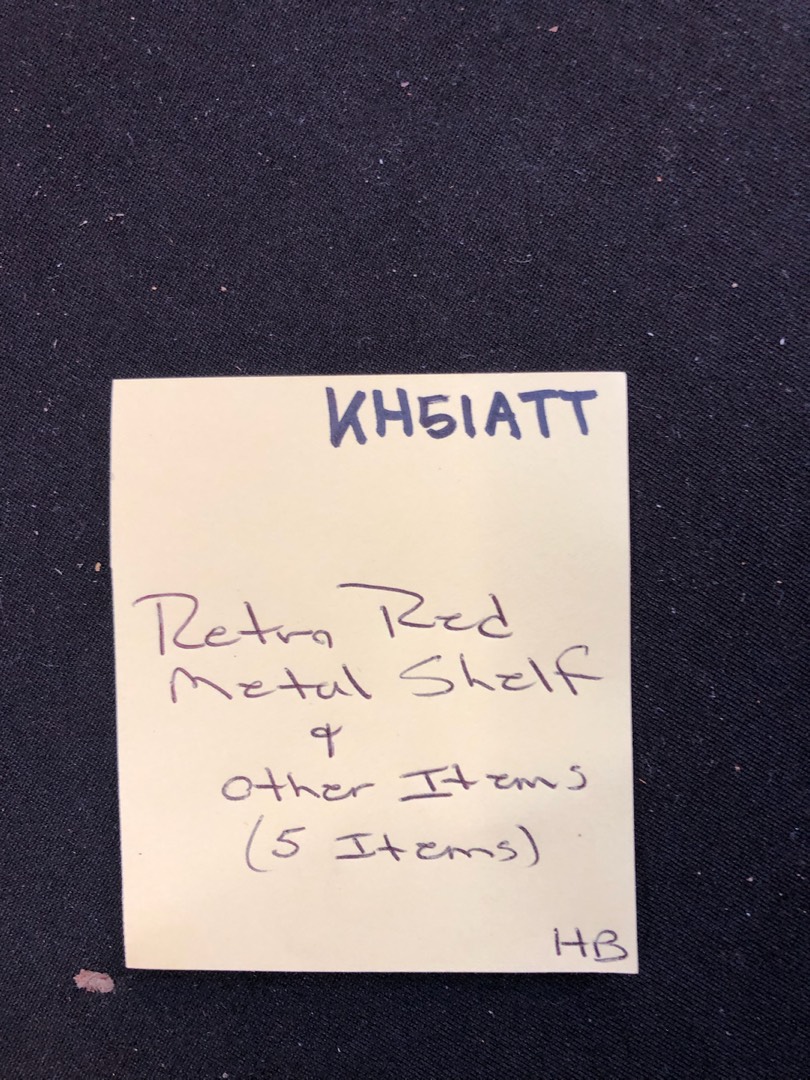 KH51ATT
Retro Red
Metal Shelf
&
Other Items
(5 Items)
HB